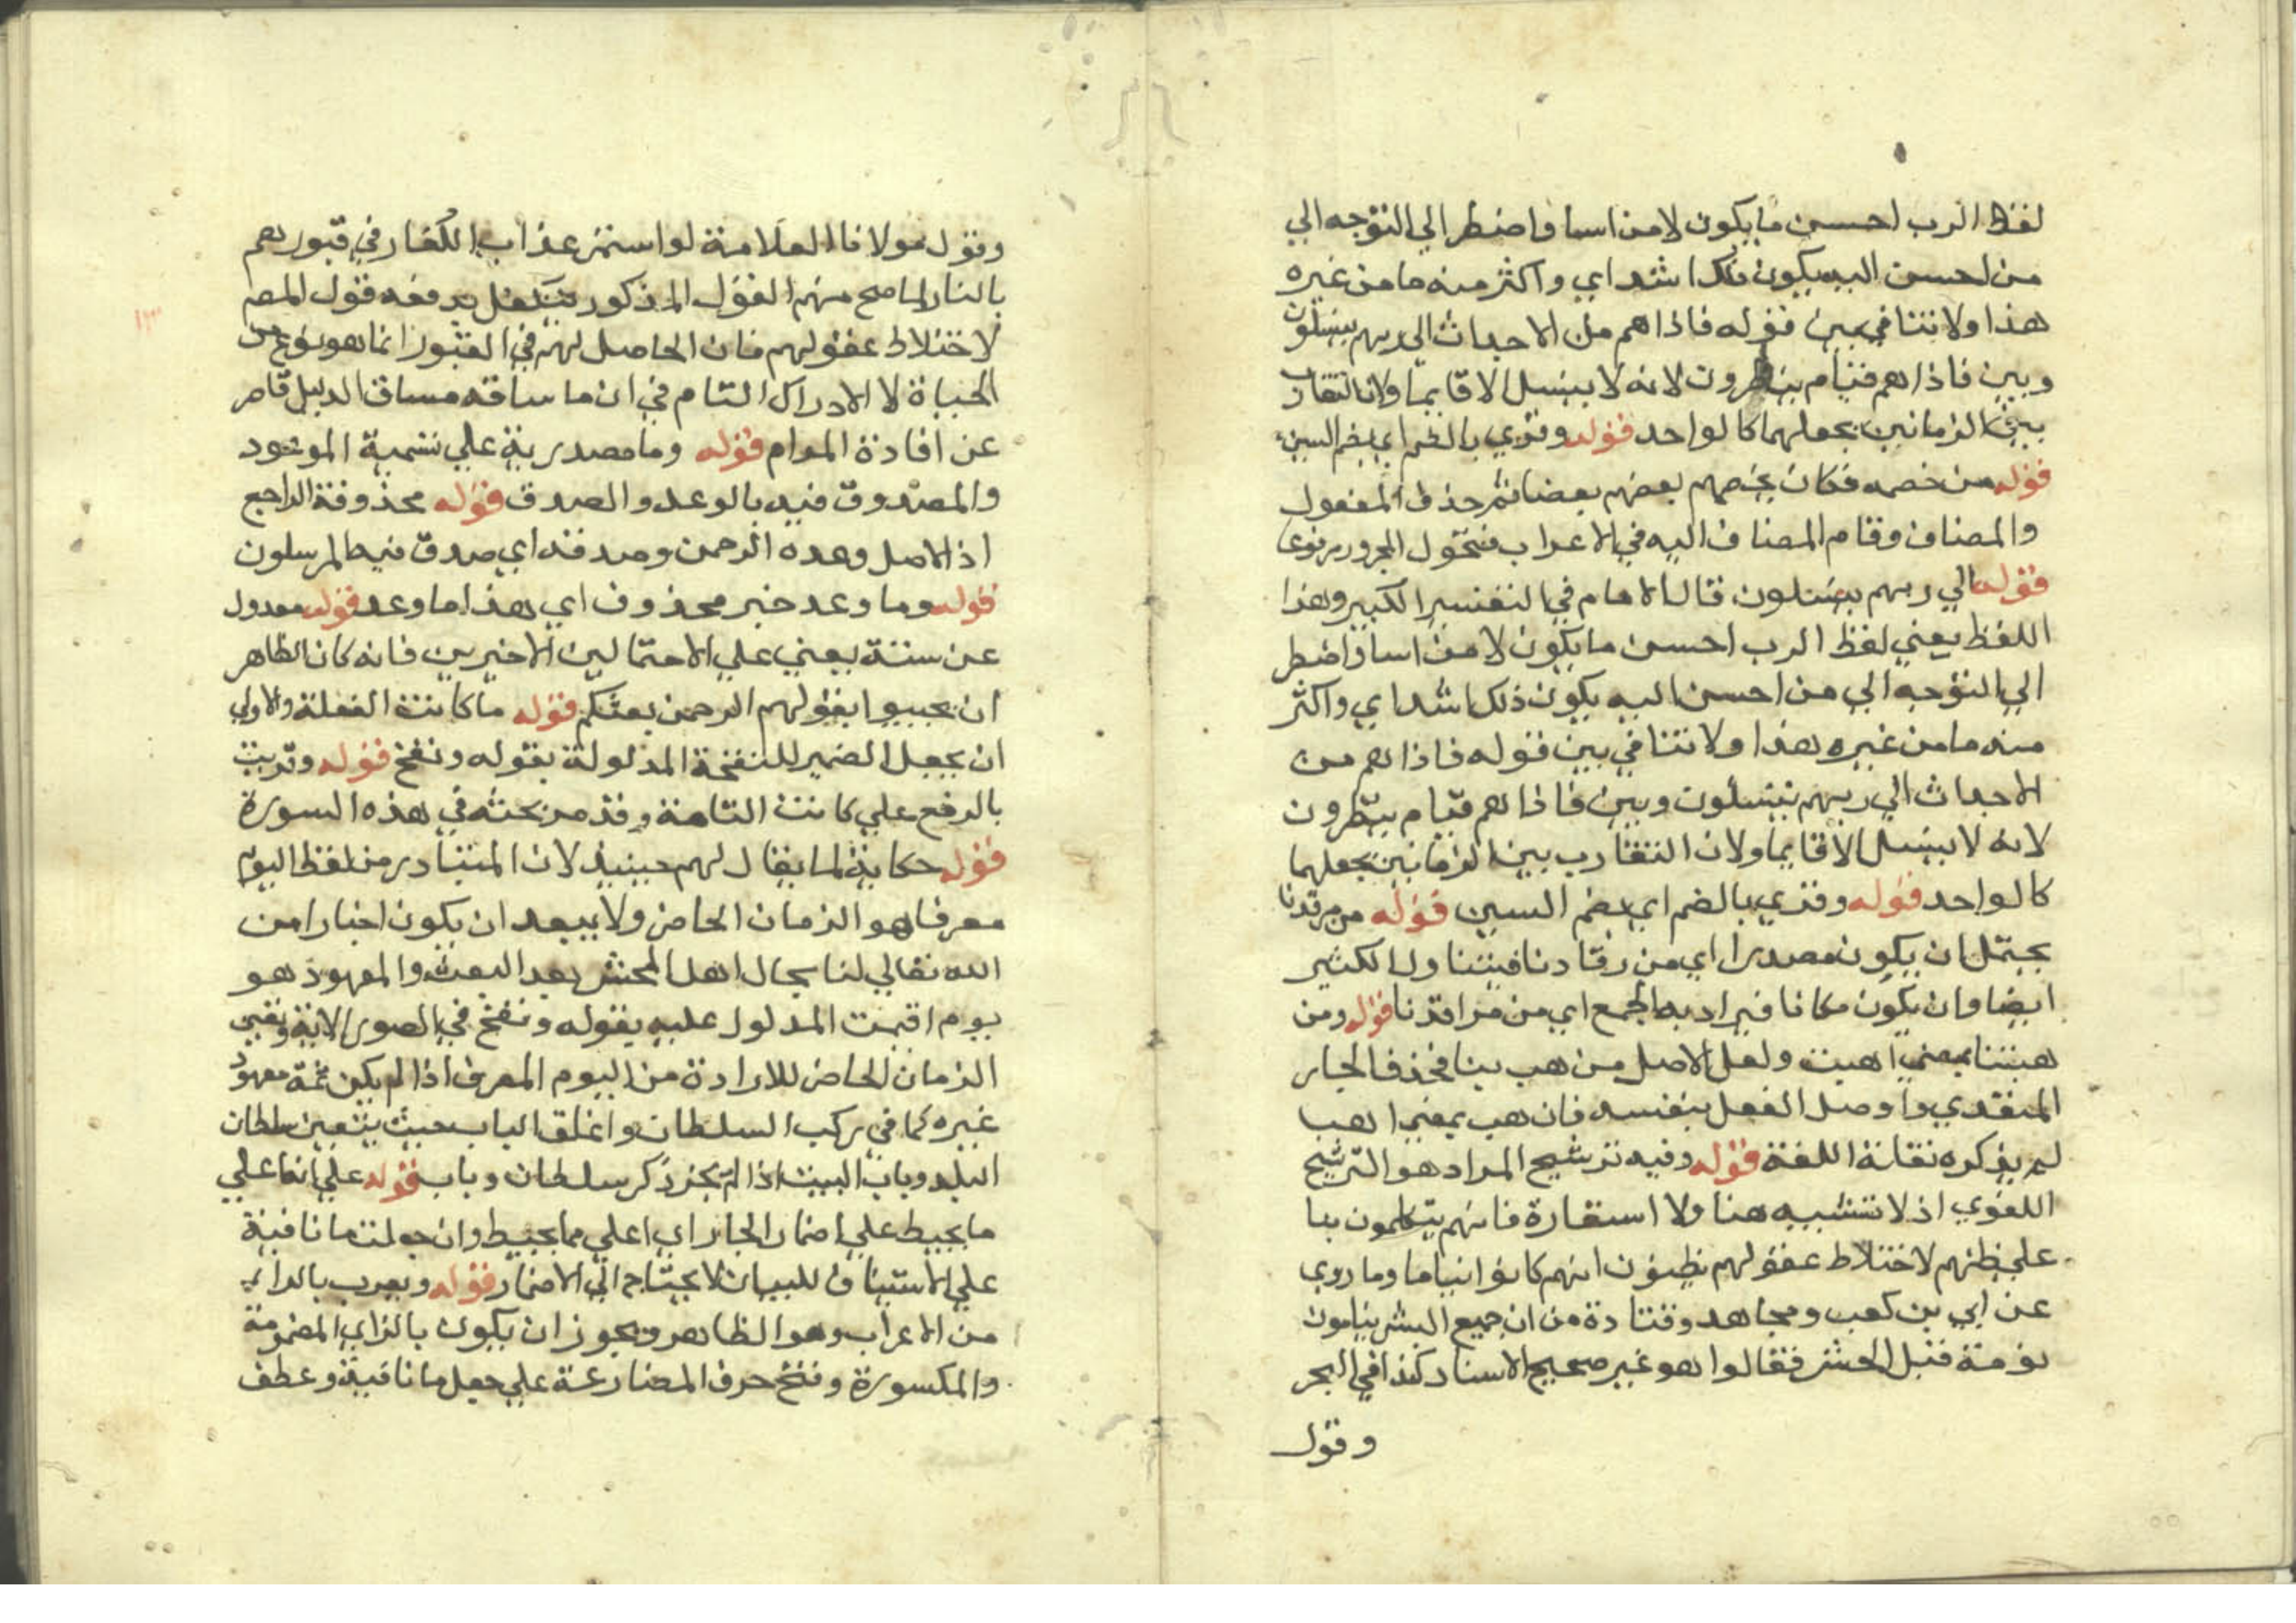 لفظ الرب احسن ما يكون لا من اسا واضطر الي التوجه الي
من احسن اليه يكون ذلك اشد اي واكثر منه ما من غيره
هذا ولا تنافي بين قوله فاذا هم من الاجداث الي ربهم ينسلون
وبين فاذا هم قيام ينظرون لانه لا ينسل الا قايما ولان التقارب
بين الزمانين يجعلهما كالواحد قوله وقري بالضم اي بضم السين
قوله من خصمه فكان يخصم بعضهم بعضا ثم حذف المفعول
والمضاف وقام المضاف اليه في الاعراب فتحول المجرور مرفوعا
قوله الي ربهم ينسلون قال الامام في التفسير الكبير وهذا
اللفظ يعني لفظ الرب احسن ما يكون لا من اسا واضطر
الي التوجه الي من احسن اليه يكون ذلك اشد اي واكثر
منه ما من غيره هذا ولا تنافي بين قوله فاذا هم من
الاجداث الي ربهم ينسلون وبين فاذا هم قيام ينظرون
لانه لا ينسل الا قايما ولان التقارب بين الزمانين يجعلهما
كالواحد قوله وقري بالضم اي بضم السين قوله من مرقدنا
يحتمل ان يكون مصدرا اي من رقادنا فيتناول الكثير
ايضا وان يكون مكانا فيراد به الجمع اي من مراقدنا قوله ومن
هبتنا بمعني اهبت ولعل الاصل من هب بنا فحذف الجار
المتعدي واوصل الفعل بنفسه فان هب بمعني اهب
لم يذكره نقلة اللغة قوله وفيه ترشيح المراد هو الترشيح
اللغوي اذ لا تشبيه هنا ولا استعارة فانهم يتكلمون بنا
علي ظنهم لاختلاط عقولهم يظنون انهم كانوا نياما وما روي
عن ابي بن كعب ومجاهد وقتادة من ان جميع البشر ينامون
نومة قبل الحشر فقالوا هو غير صحيح الاسناد كذا في البحر
وقول
وقول مولانا العلامة لو استمر عذاب الكفار في قبورهم
بالنار لما صح منهم القول المذكور يدفعه قول المصم
لاختلاط عقولهم فان الحاصل لهم في القبور انما هو نوع من
الحياة لا الادراك التام في ان ما ساقه مساق الدليل قاصر
عن افادة المرام قوله وما مصدرية علي تسمية الموعود
والمصدوق فيه بالوعد والصدق قوله محذوفة الراجع
اذ الاصل وعده الرحمن وصدقه اي صدق فيه المرسلون
قوله وما وعد خبر محذوف اي هذا ما وعد قوله معدول
عن سننه يعني علي الاحتمالين الاخيرين فانه كان الظاهر
ان يجيبوا بقولهم الرحمن بعثكم قوله ما كانت الفعلة والاولي
ان يجعل الضمير للنفخة المدلولة بقوله ونفخ قوله وقريت
بالرفع علي كانت التامة وقد مر بحثه في هذه السورة
قوله حكاية لما يقال لهم حينيذ لان المتبادر من لفظ اليوم
معرفا هو الزمان الحاضر ولا يبعد ان يكون اخبارا من
الله تعالي لنا بحال اهل المحشر بعد البعث والمعهود هو
يوم اقيمت المدلول عليه بقوله ونفخ في الصور الاية وتعين
الزمان الحاضر للارادة من اليوم المعرف اذا لم يكن ثمة معهود
غيره كما في ركب السلطان واغلق الباب حيث يتعين سلطان
البلد وباب البيت اذا لم يجر ذكر سلطان وباب قوله علي انفا علي
ما يحيط علي اضمار الجار اي اعلي مما يحيط وان جعلت ما نافية
علي الاستيناف للبيان لا يحتاج الي الاضمار قوله ويعرب بالراء
من الاعراب وهو الظاهر ويجوز ان يكون بالزاي المضمومة
والمكسورة وفتح حرف المضارعة علي جعل ما نافية وعطف